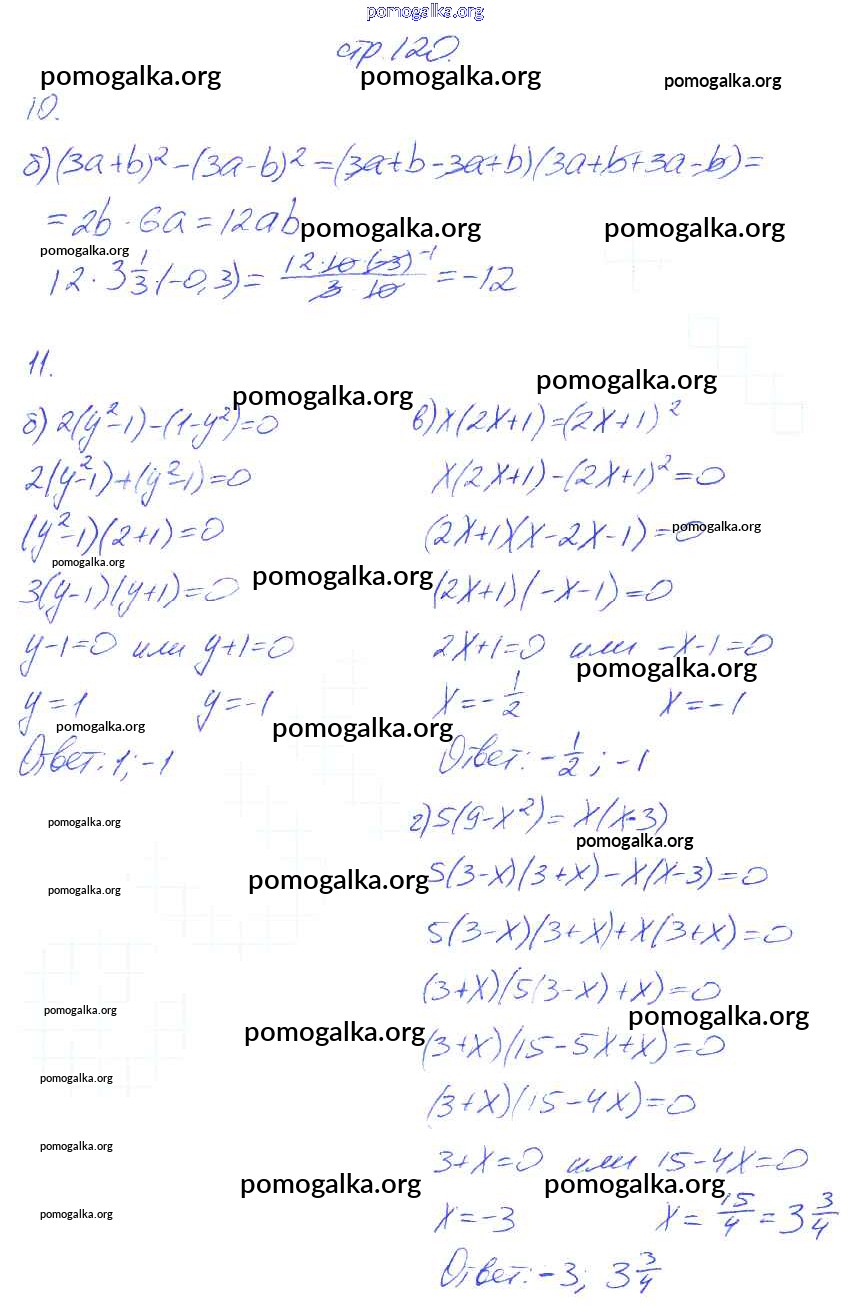 pomogalka.org
стр. 120.
pomogalka.org pomogalka.org pomogalka.org
10.
б) (3a+b)² - (3a-b)² = (3a+b-3a+b)(3a+b+3a-b) =
= 2b · 6a = 12ab
pomogalka.org pomogalka.org
pomogalka.org
12 · 3 1/3 · (-0,3) = 12·10·(-3) -1 / 3 · 10 = -12
11.
pomogalka.org pomogalka.org
б) 2(y²-1)-(1-y²)=0
2(y²-1)+(y²-1)=0
(y²-1)(2+1)=0
pomogalka.org
3(y-1)(y+1)=0
pomogalka.org
y-1=0 или y+1=0
y=1 y=-1
pomogalka.org pomogalka.org
Ответ: 1; -1
в) x(2x+1)=(2x+1)²
x(2x+1)-(2x+1)²=0
(2x+1)(x-2x-1)=0
pomogalka.org
(2x+1)(-x-1)=0
2x+1=0 или -x-1=0
pomogalka.org
x=-1/2 x=-1
Ответ: -1/2; -1
г) 5(9-x²)= x(x-3)
pomogalka.org pomogalka.org
5(3-x)(3+x)-x(x-3)=0
pomogalka.org pomogalka.org
5(3-x)(3+x)+x(3+x)=0
(3+x)(5(3-x)+x)=0
pomogalka.org pomogalka.org
(3+x)(15-5x+x)=0
pomogalka.org
pomogalka.org
(3+x)(15-4x)=0
pomogalka.org
3+x=0 или 15-4x=0
pomogalka.org pomogalka.org
pomogalka.org
x=-3 x=15/4=3 3/4
Ответ: -3; 3 3/4